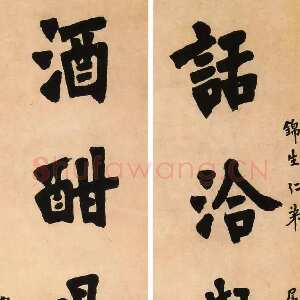 錦生仁弟
話洽
酒酣
Shufawang.CN